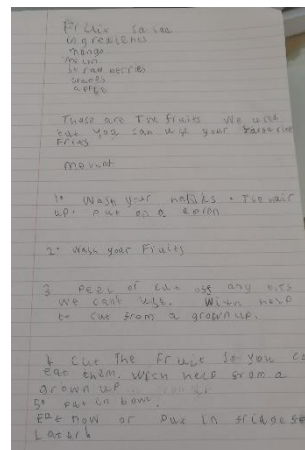 Fruit Salad
ingredients
mango
melon
strawberries
grapes
apple
Those are The fruits We used
but you can use your favourite
Fruits
1. Wash your hands. Tie hair
up. Put on a apron
2. Wash your Fruits
3 Peel or cut off any bits
we cant use. With help
to cut from a grown up.
4 Cut The Fruit So you can
eat them. With help from a
grown up
5. Put in bowl.
Eat now or put in fridge for
Later